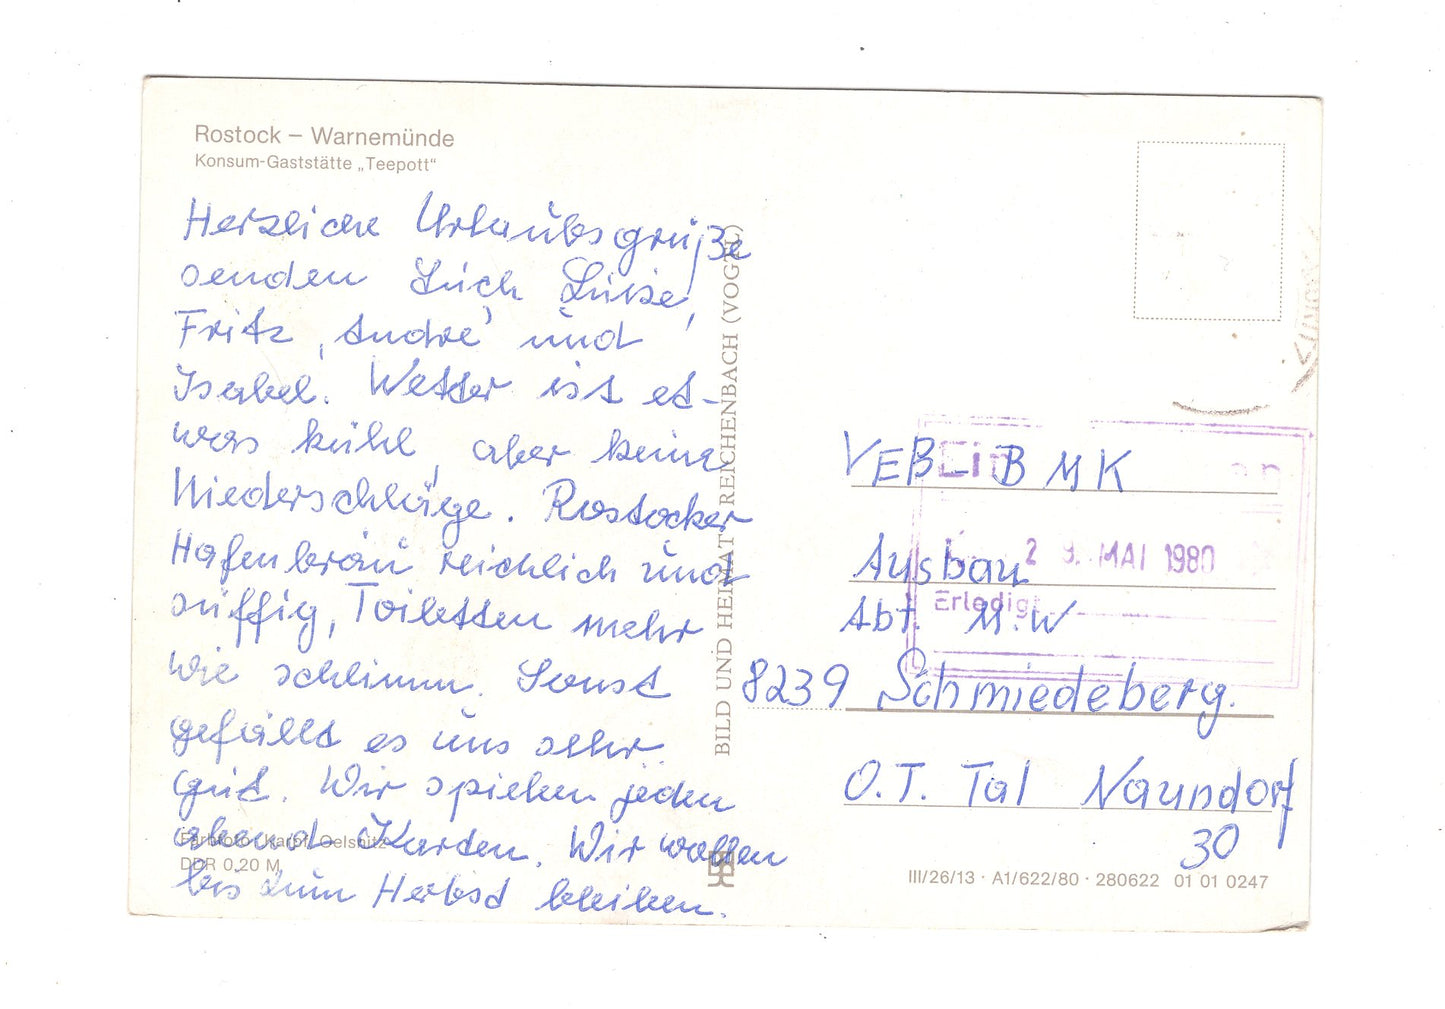 Rostock – Warnemünde
Konsum-Gaststätte „Teepott“
Herzliche Urlaubsgrüße
senden Euch Luise,
Fritz, André und
Isabel. Wetter ist et-
was kühl, aber keine
Niederschläge. Rostocker
Hafenbräu reichlich und
süffig, Toiletten mehr
wie schlimm. Sonst
gefällt es uns sehr
gut. Wir spielen jeden
abend Karten. Wir wollen
bis zum Herbst bleiben.
Farbfoto: Karpf, Oelsnitz
DDR 0,20 M
BILD UND HEIMAT REICHENBACH (VOGTL)
VEB – BMK
Ausbau
Abt. M.W
8239 Schmiedeberg.
O.T. Tal Naundorf
30
29. MAI 1980
Erledigt
III/26/13 · A1/622/80 · 280622 01 01 0247